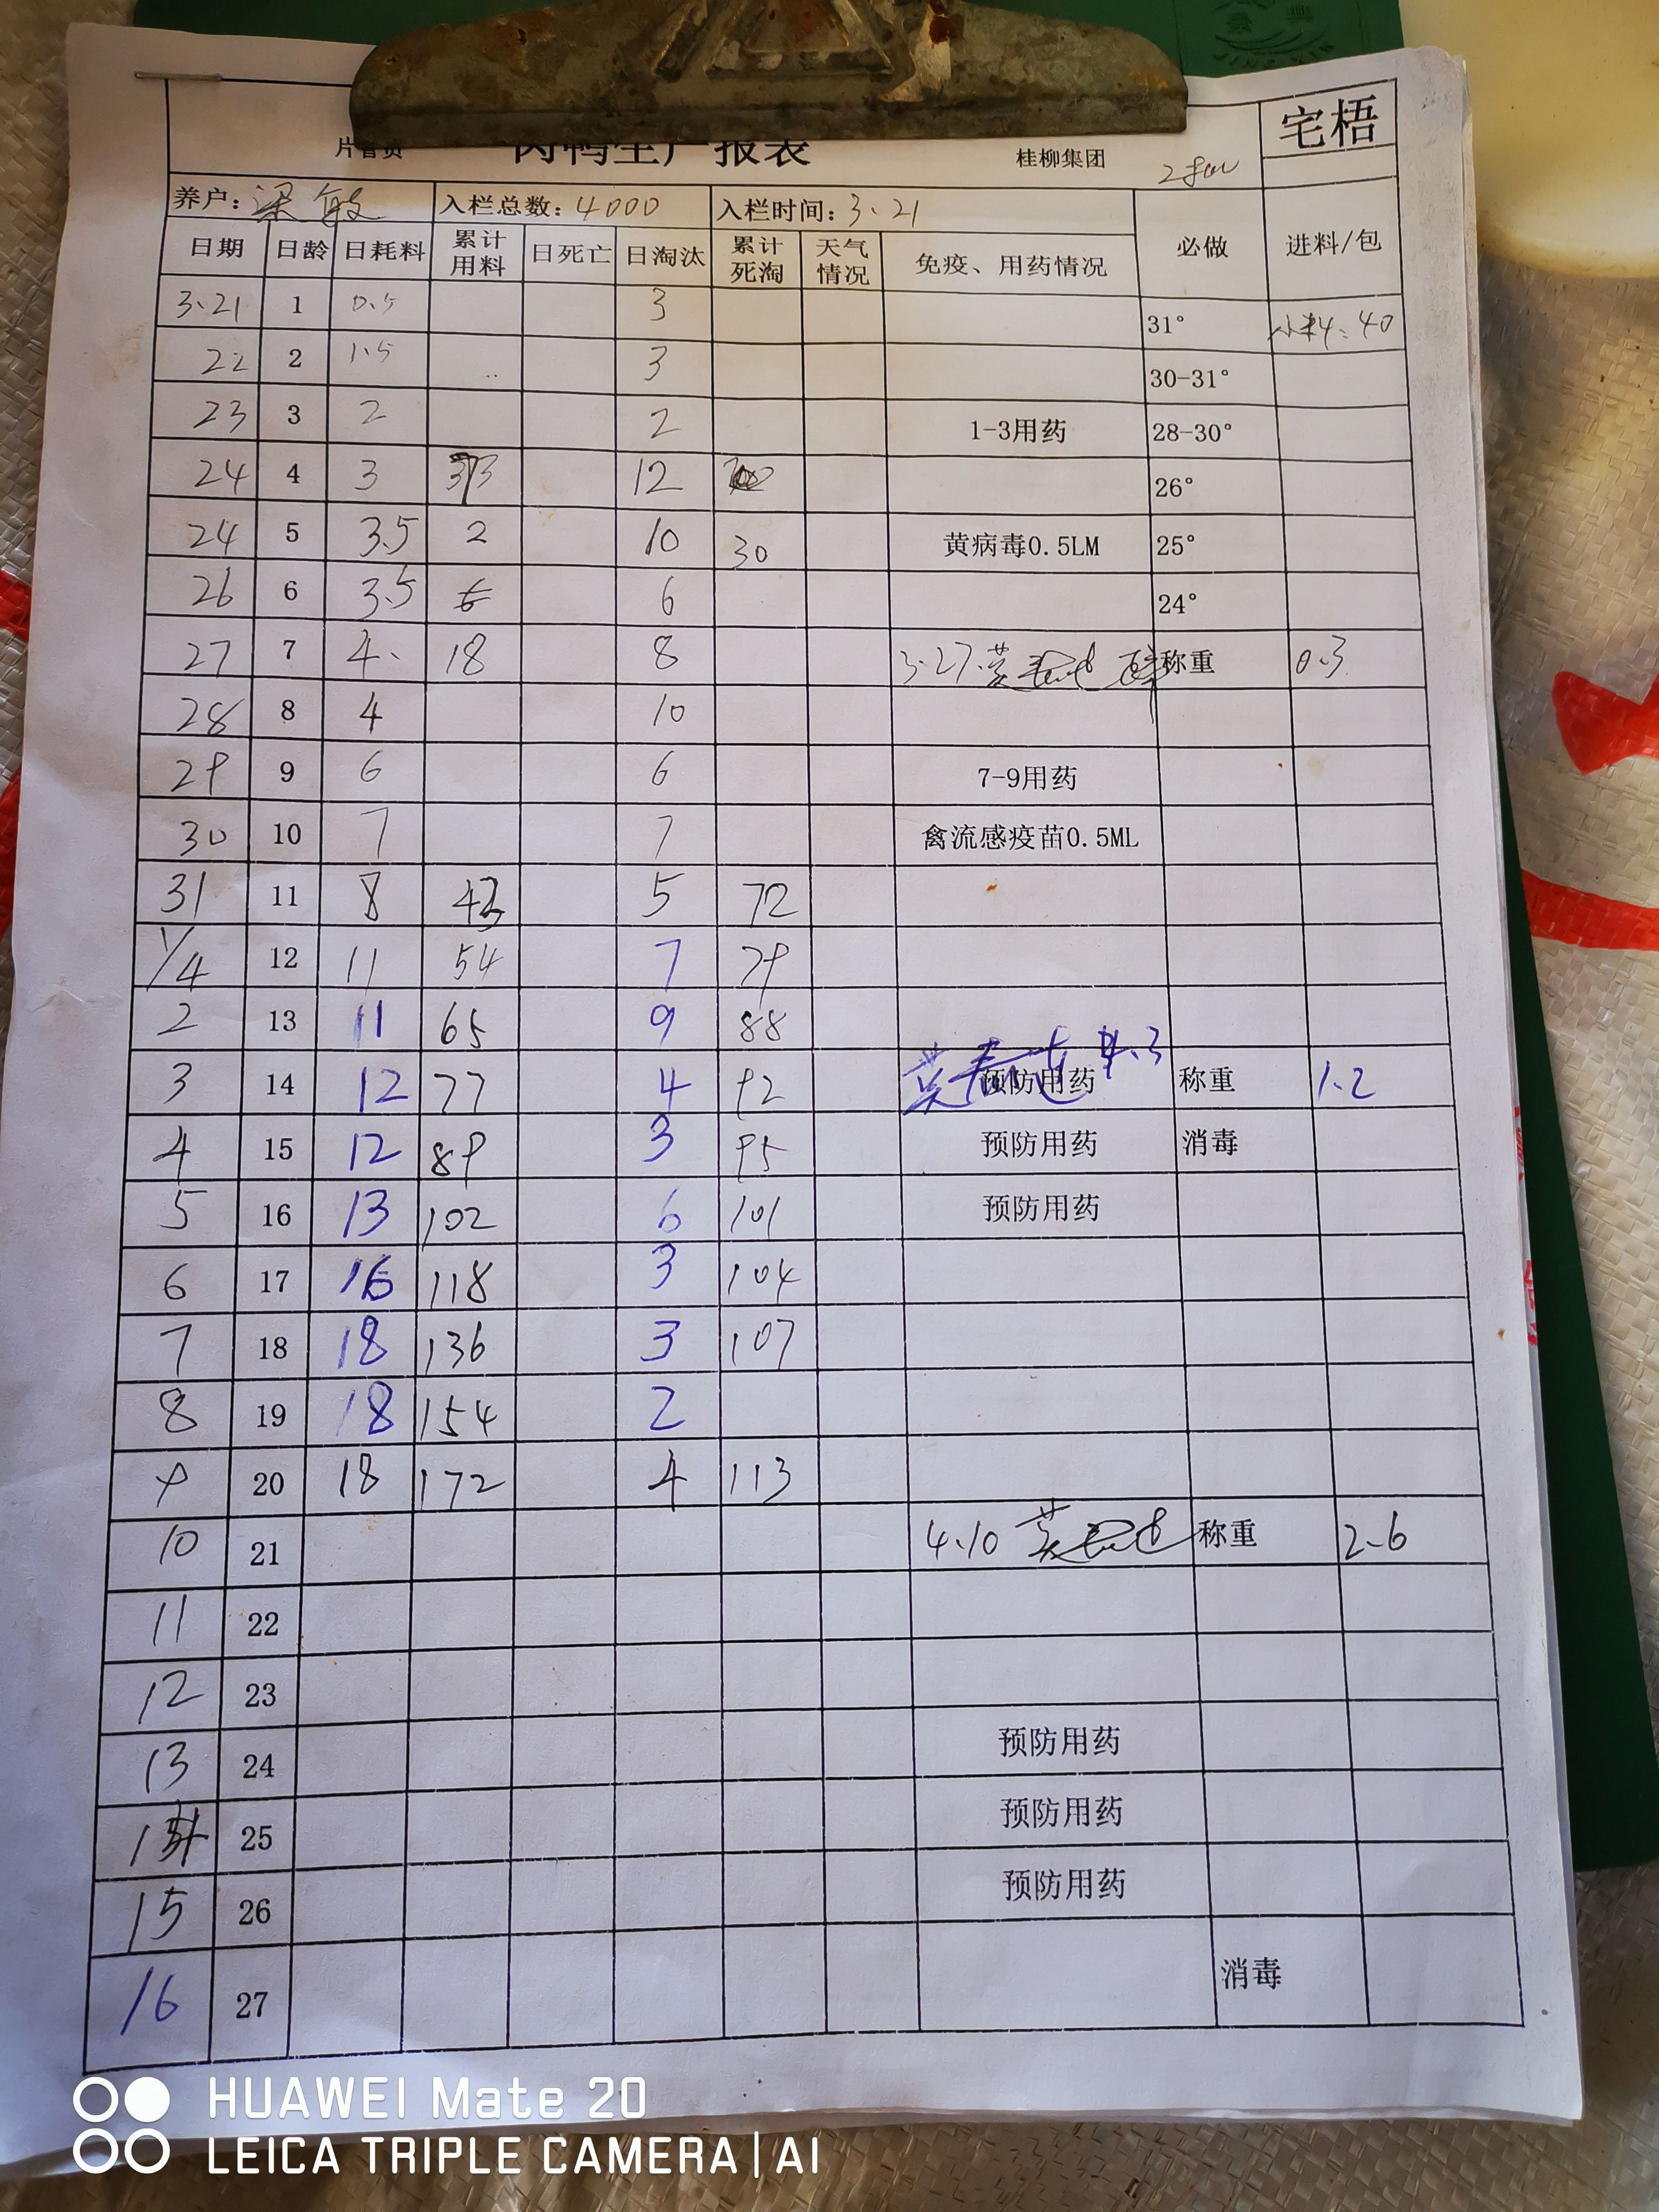 肉鸭生产报表 桂柳集团 宅梧
养户: 梁敏 入栏总数: 4000 入栏时间: 3.21
日期 日龄 日耗料 累计用料 日死亡 日淘汰 累计死淘 天气情况 免疫、用药情况 必做 进料/包
3.21 1 0.5 3 31° 小料: 40
22 2 1.5 3 30-31°
23 3 2 2 1-3用药 28-30°
24 4 3 12 26°
24 5 3.5 2 10 30 黄病毒0.5LM 25°
26 6 3.5 6 6 24°
27 7 4. 18 8 3.27 称重 0.3
28 8 4 10
29 9 6 6 7-9用药
30 10 7 7 禽流感疫苗0.5ML
31 11 8 43 5 72
1/4 12 11 54 7 79
2 13 11 65 9 88
3 14 12 77 4 92 预防用药 4.3 称重 1.2
4 15 12 89 3 95 预防用药 消毒
5 16 13 102 6 101 预防用药
6 17 16 118 3 104
7 18 18 136 3 107
8 19 18 154 2
9 20 18 172 4 113
10 21 4.10 称重 2.6
11 22
12 23
13 24 预防用药
14 25 预防用药
15 26 预防用药
16 27 消毒
HUAWEI Mate 20
LEICA TRIPLE CAMERA | AI